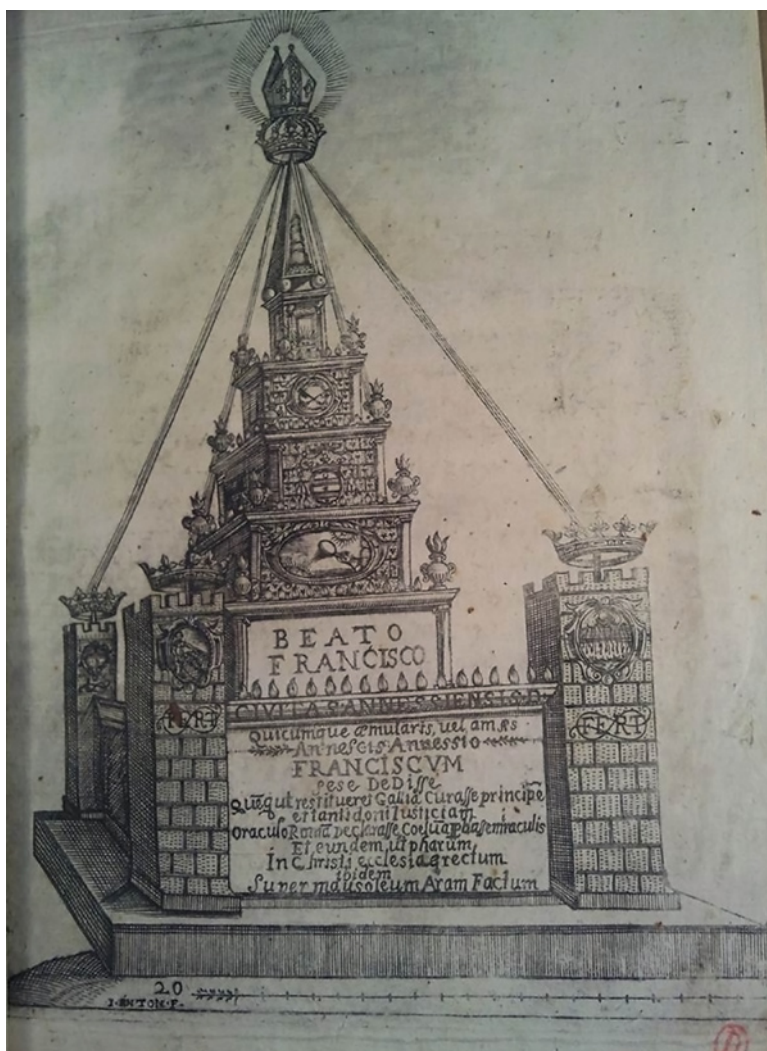 BEATO
FRANCISCO
CIVITAS ANNESSIENSIS D
FERT
FERT
Quicumque æmularis, vel
Annessio
FRANCISCVM
sese DeDisse
restitueret Galliâ Curasse principē
et tanti doni Iusticiam
Oraculo Declarasse miraculis
Et eundem, ut pharum,
In Christi ecclesia erectum
ibidem
Super mausoleum Aram Factum
20